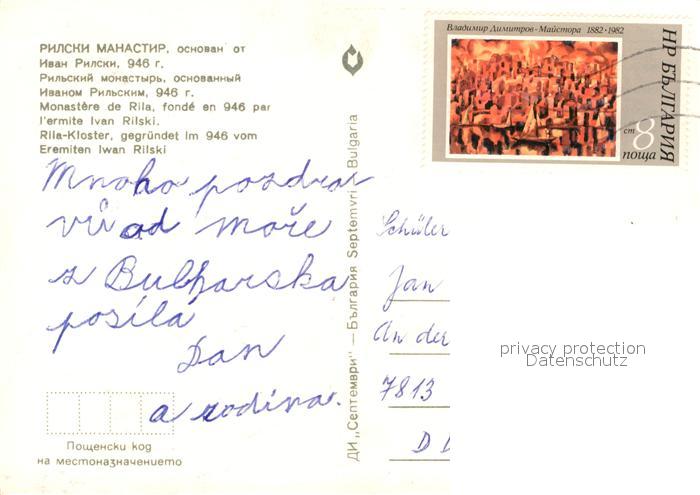 РИЛСКИ МАНАСТИР, основан от
Иван Рилски, 946 г.
Рильский монастырь, основанный
Иваном Рильским, 946 г.
Monastère de Rila, fondé en 946 par
l'ermite Ivan Rilski.
Rila-Kloster, gegründet im 946 vom
Eremiten Iwan Rilski
Mnoho pozdra
vů od moře
z Bulharska
posílá
Dan
a rodina.
Пощенски код
на местоназначението
ДИ „Септември" — България Septemvri — Bulgaria
Владимир Димитров-Майстора 1882·1982
НР БЪЛГАРИЯ
ст 8
поща
Schüler
Jan
An der
7813
D D
privacy protection
Datenschutz